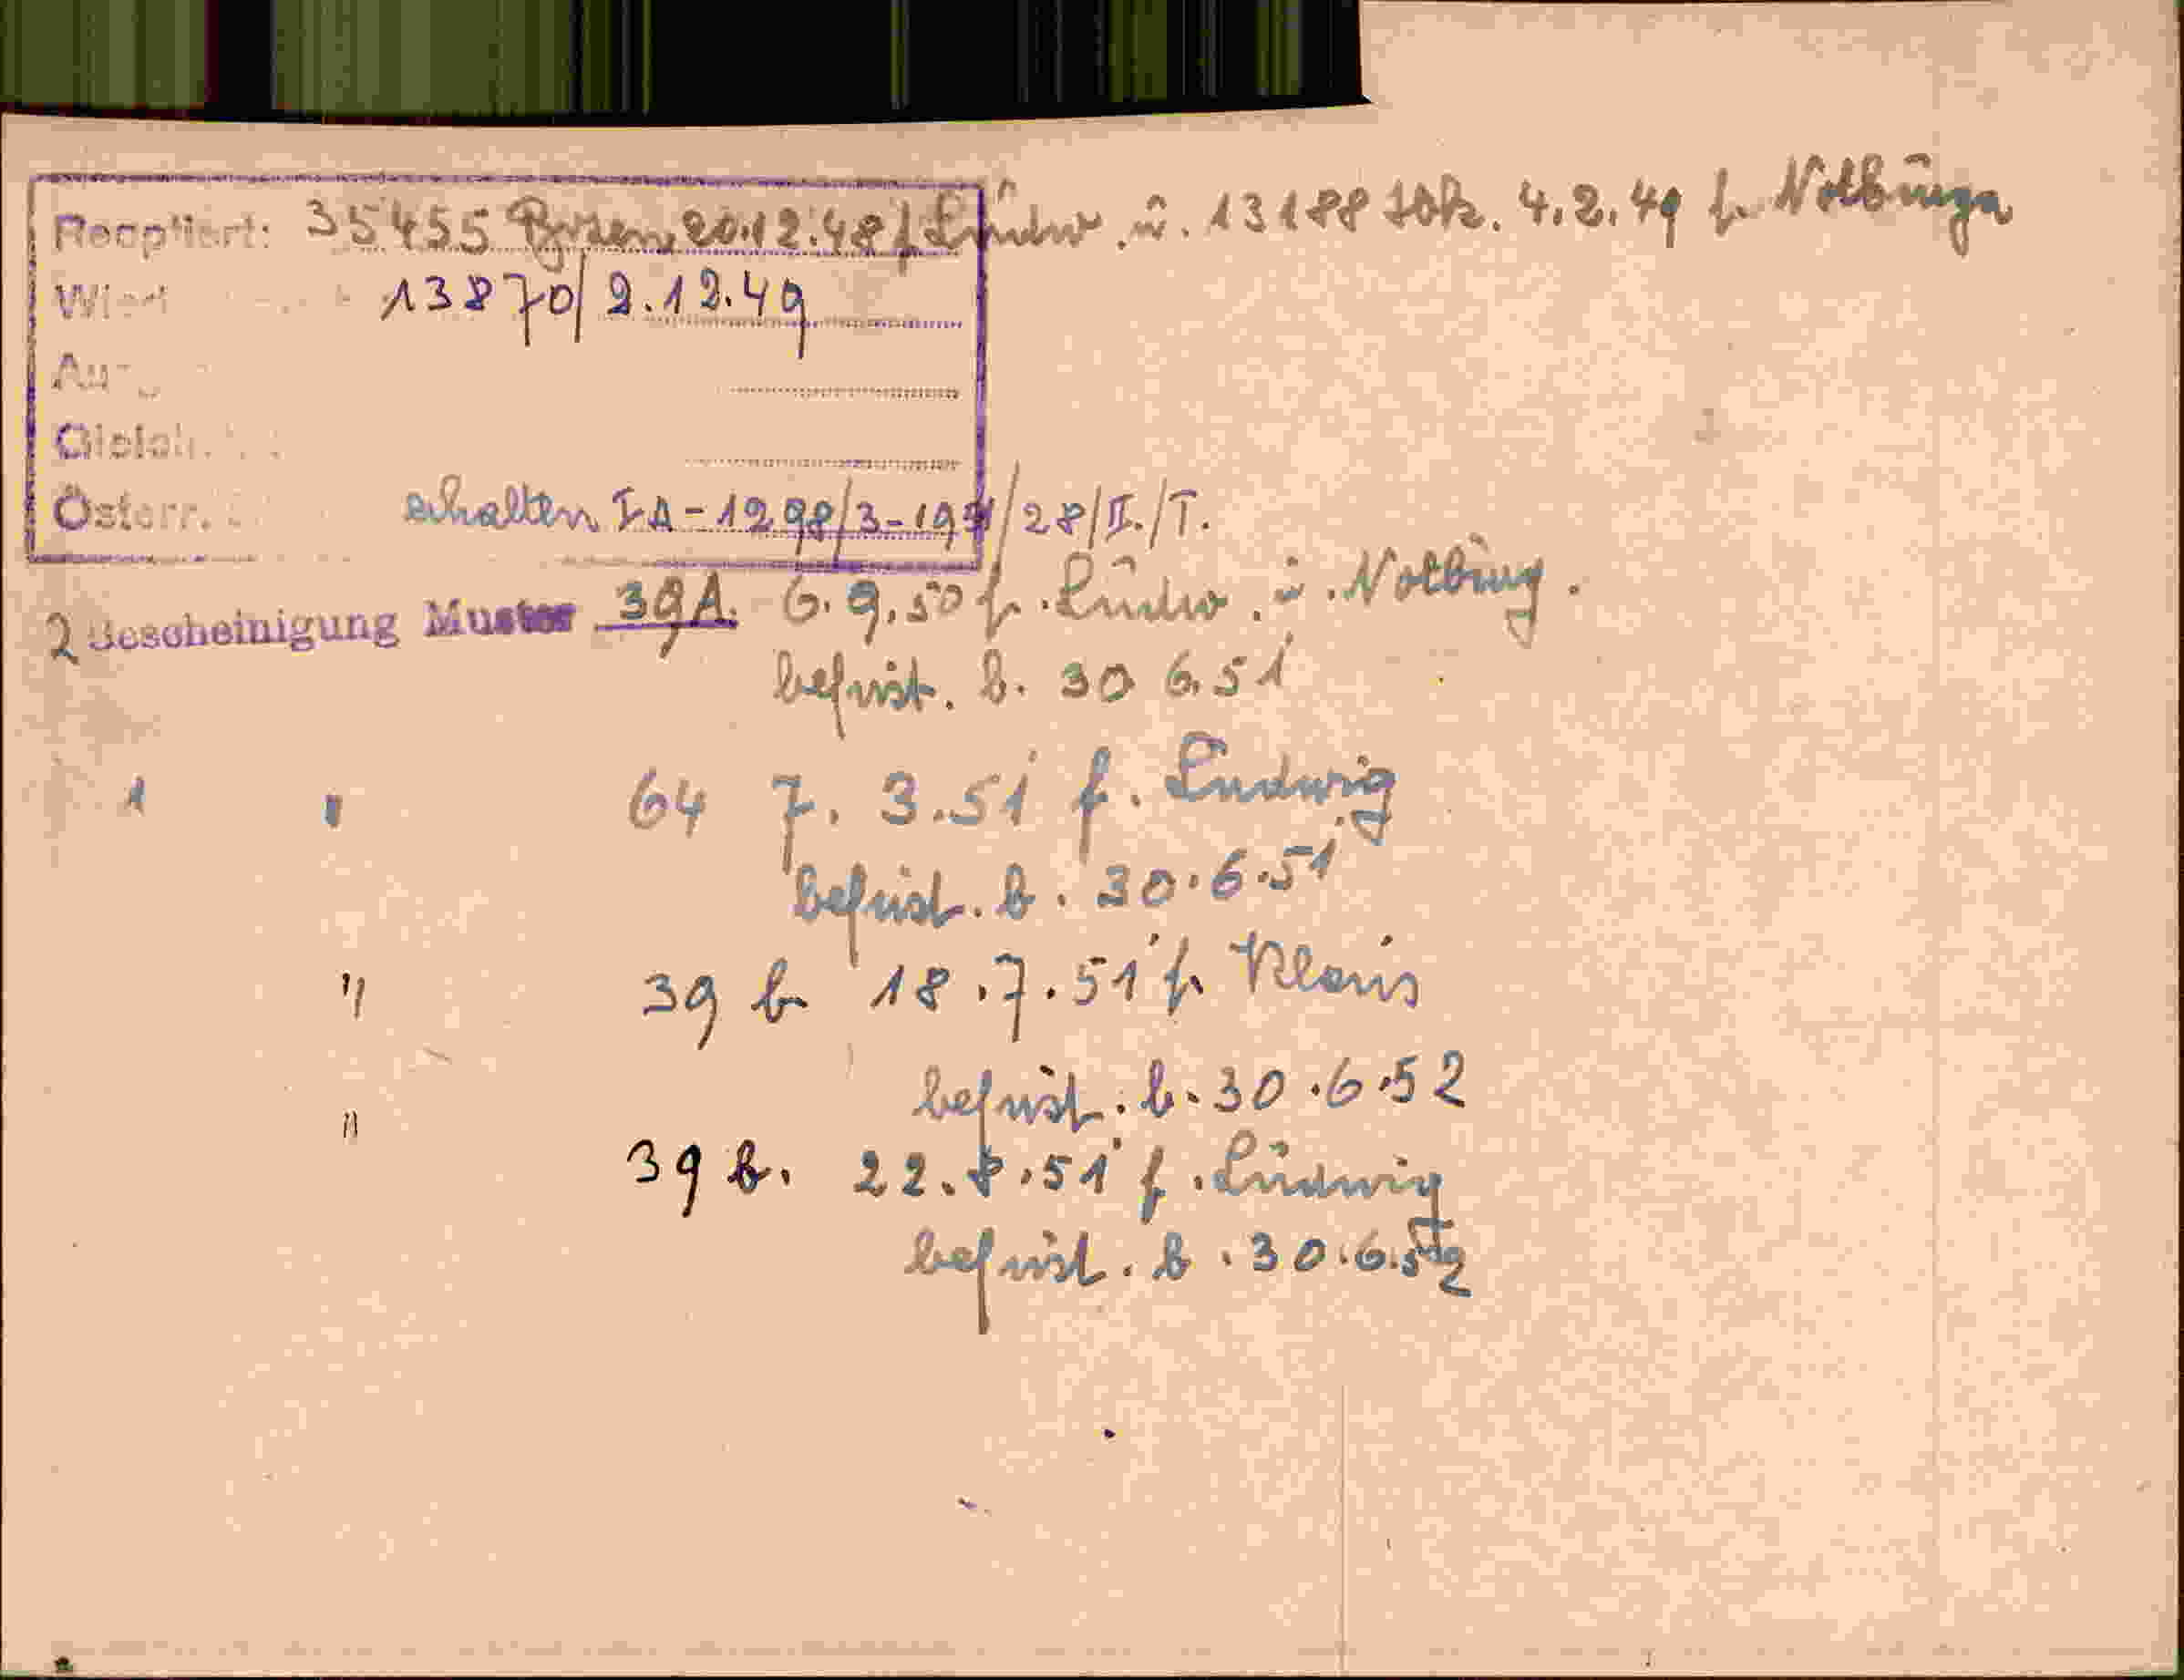 35455 Bozen 20.12.48 f. Ludw. u. 13188 4.2.49 f. Notburga
13870/2.12.49
Österr. erhalten IA-1298/3-19 /28/I./T.
2 Bescheinigung Muster 39A. 6.9.50 f. Ludw. u. Notburg.
befrist. b. 30 6.51
1 " 64 7. 3.51 f. Ludwig
befrist. b. 30.6.51
" 39 b 18.7.51 f. Klaus
befrist. b. 30.6.52
" 39 b. 22.8.51 f. Ludwig
befrist. b. 30.6.52